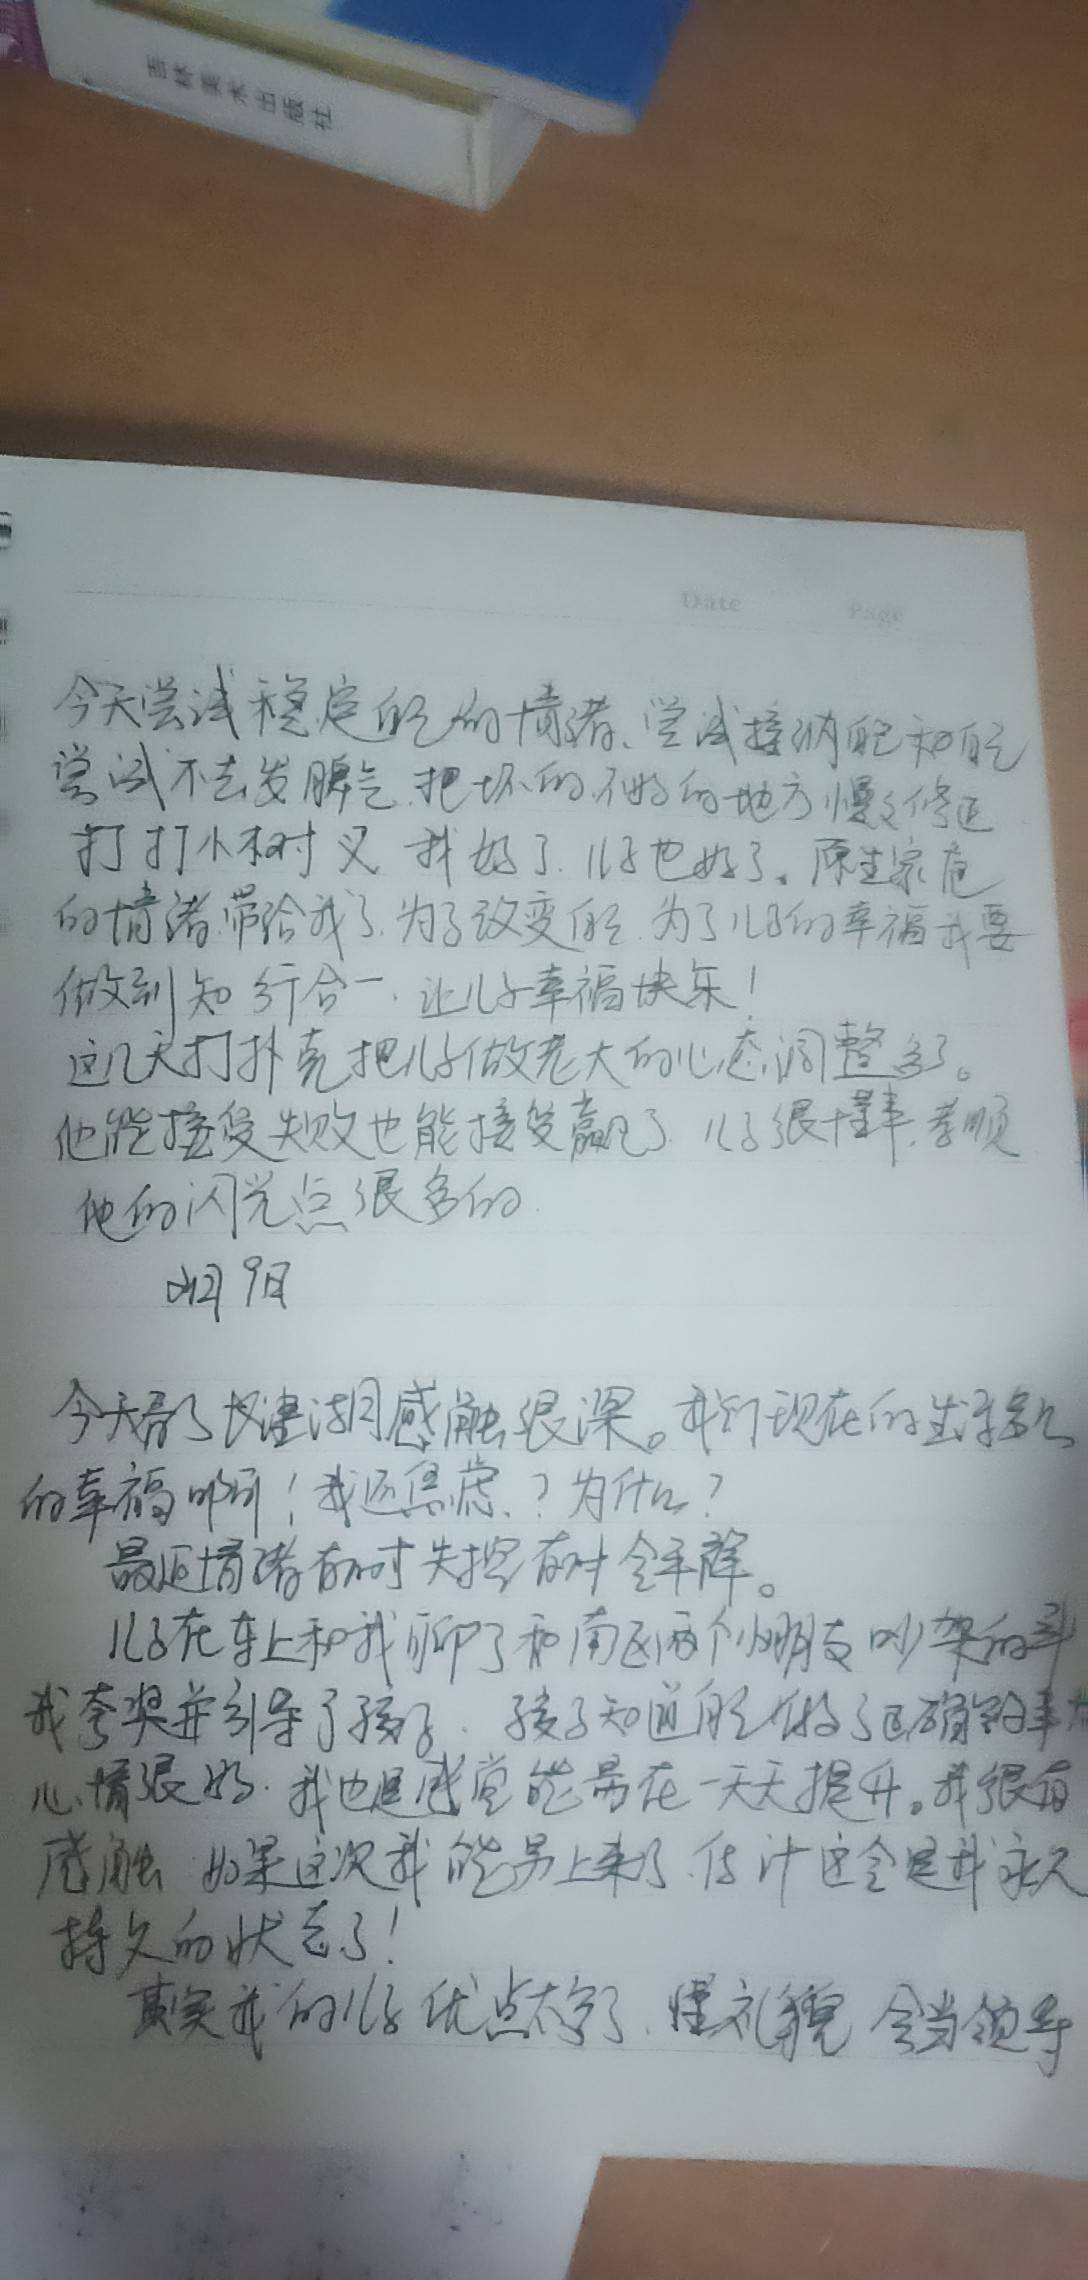 吉林美术出版社
Date Page
今天尝试稳定自己的情绪、尝试接纳自己和自己
尝试不去发脾气.把坏的.不好的地方慢慢修正
打打小树义 我好了.儿子也好了。原生家庭
的情绪.带给我了.为了改变自己.为了儿子的幸福我要
做到知行合一.让儿子幸福快乐！
这几天打扑克把儿子做老大的心态调整多了。
他能接受失败也能接受赢了.儿子很懂事.孝顺
他的闪光点很多的.
9日
今天看了长津湖感触很深。我们现在的生活多么
的幸福啊！我还焦虑.？为什么？
最近情绪有时失控有时会平静。
儿子在车上和我聊了和南区两个小朋友吵架的事
我夸奖并引导了孩子.孩子知道自己做了正确的事
心情很好.我也是感觉能量在一天天提升。我很有
感触.如果这次我能量上来了.估计这会是我永久
持久的状态了！
其实我的儿子优点太多了.懂礼貌 会当领导